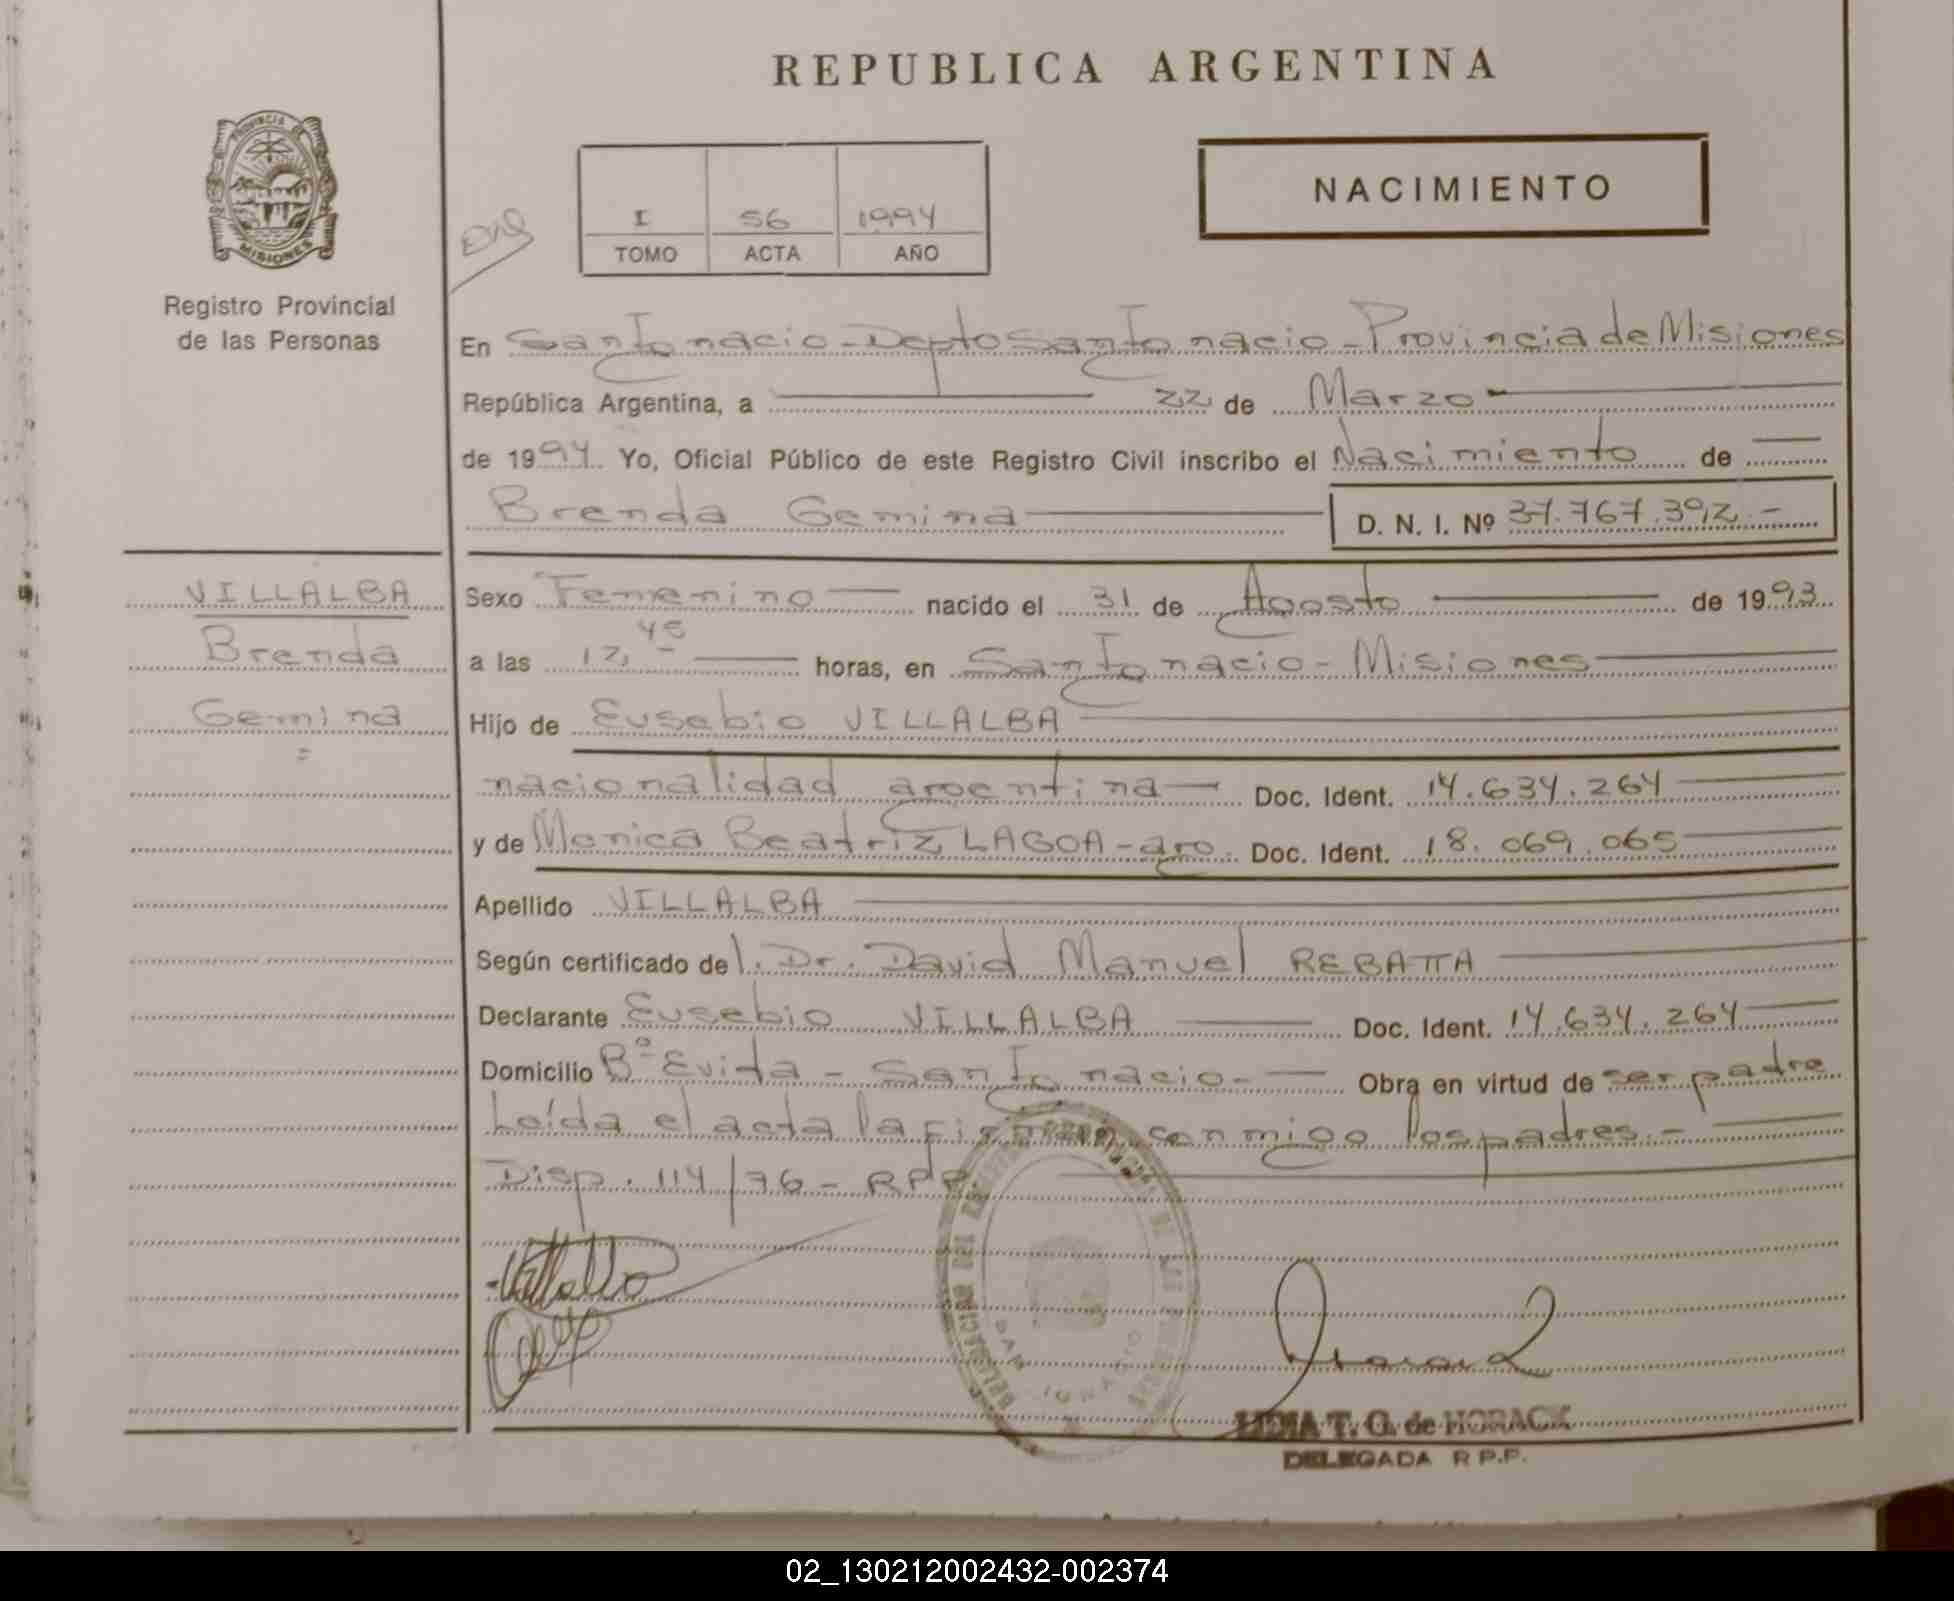 REPUBLICA ARGENTINA
PROVINCIA DE
MISIONES
Registro Provincial
de las Personas
I 56 1994
TOMO ACTA AÑO
NACIMIENTO
En San Ignacio - Depto San Ignacio - Provincia de Misiones
República Argentina, a 22 de Marzo
de 1994 Yo, Oficial Público de este Registro Civil inscribo el Nacimiento de
Brenda Gemina D. N. I. Nº 37.767.392 -
VILLALBA
Brenda
Gemina
Sexo Femenino nacido el 31 de Agosto de 1993
a las 12,45 horas, en San Ignacio - Misiones
Hijo de Eusebio VILLALBA
nacionalidad argentina Doc. Ident. 14.634.264
y de Monica Beatriz LAGOA - arg. Doc. Ident. 18.069.065
Apellido VILLALBA
Según certificado del Dr. David Manuel REBATTA
Declarante Eusebio VILLALBA Doc. Ident. 14.634.264
Domicilio Bº Evita - San Ignacio - Obra en virtud de ser padre
Leída el acta la firman conmigo los padres.-
Disp. 114/76 - RPP
DELEGACION DEL
SAN IGNACIO
LIDIA T. G. de HORACK
DELEGADA R P.P.
02_130212002432-002374